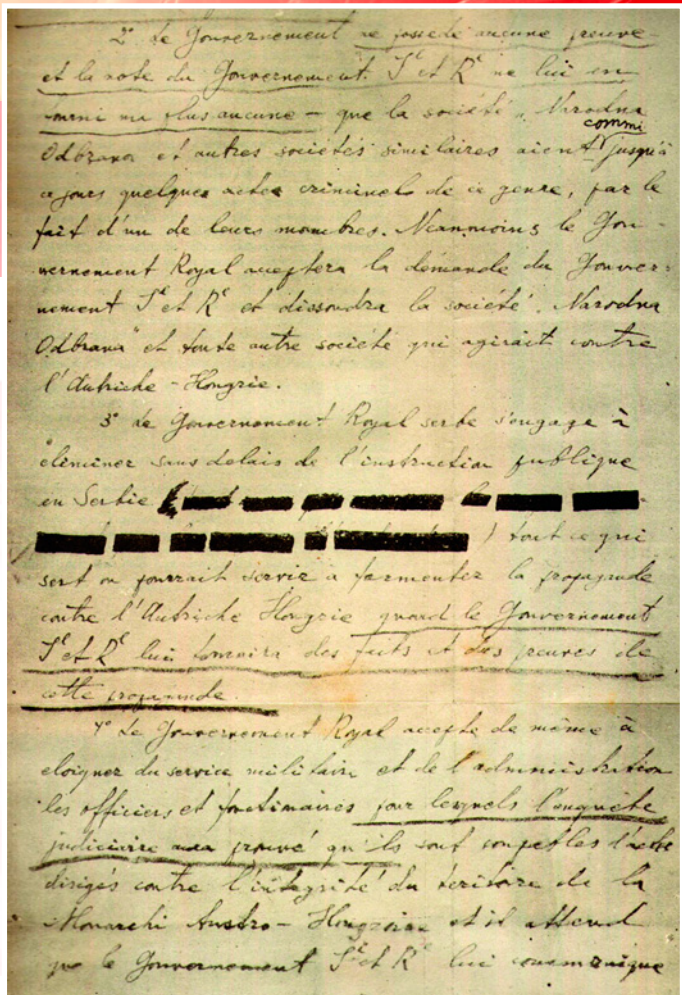 2° Le Gouvernement ne possède aucune preuve –
et la note du Gouvernement I et R ne lui en
fourni na plus aucune – que la société „Narodna
commi
Odbrana et autres sociétés similaires aient jusqu'à
ce jours quelques actes criminel de ce genre, par le
fait d'un de leurs mombres. Neanmoins le Gou-
vernement Royal acceptera la démande du Gouver-
nement Iˡ et Rˡ et dissoudra la société „Narodna
Odbrana" et toute autre société qui agirait contre
l'Autriche-Hongrie.
3° Le Gouvernement Royal serbe s'engage à
éliminer sans delais de l'instruction publique
en Serbie (
) tout ce qui
sert ou pourrait servir a fermenter la propagande
contre l'Autriche Hongrie quand le Gouvernement
Iˡ et Rˡ lui fournira des faits et des preuves de
cette propagande.
4° Le Gouvernement Royal accepte de même à
eloigner du service militaire et de l'administration
les officiers et fonctionaires pour lesquels l'enquête
judiciaire aura prouvé qu'ils sont coupables d'actes
dirigés contre l'intégrité du teritoire de la
Monarchi Austro-Hongroise et il attend
que le Gouvernement Iˡ et Rˡ lui communique